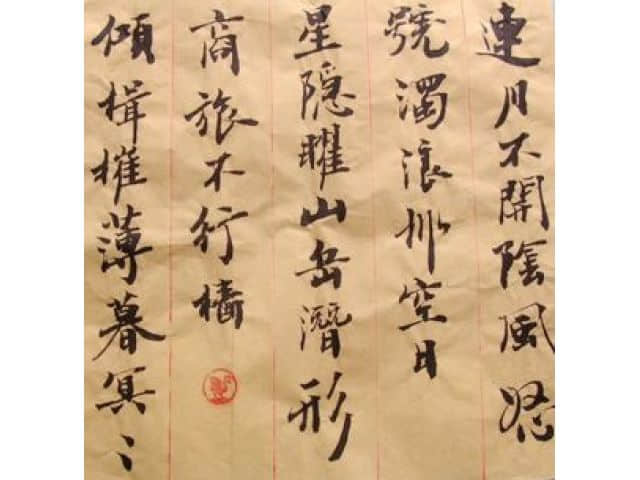 連月不開陰風怒
號濁浪排空日
星隱曜山岳潛形
商旅不行檣
傾楫摧薄暮冥〻